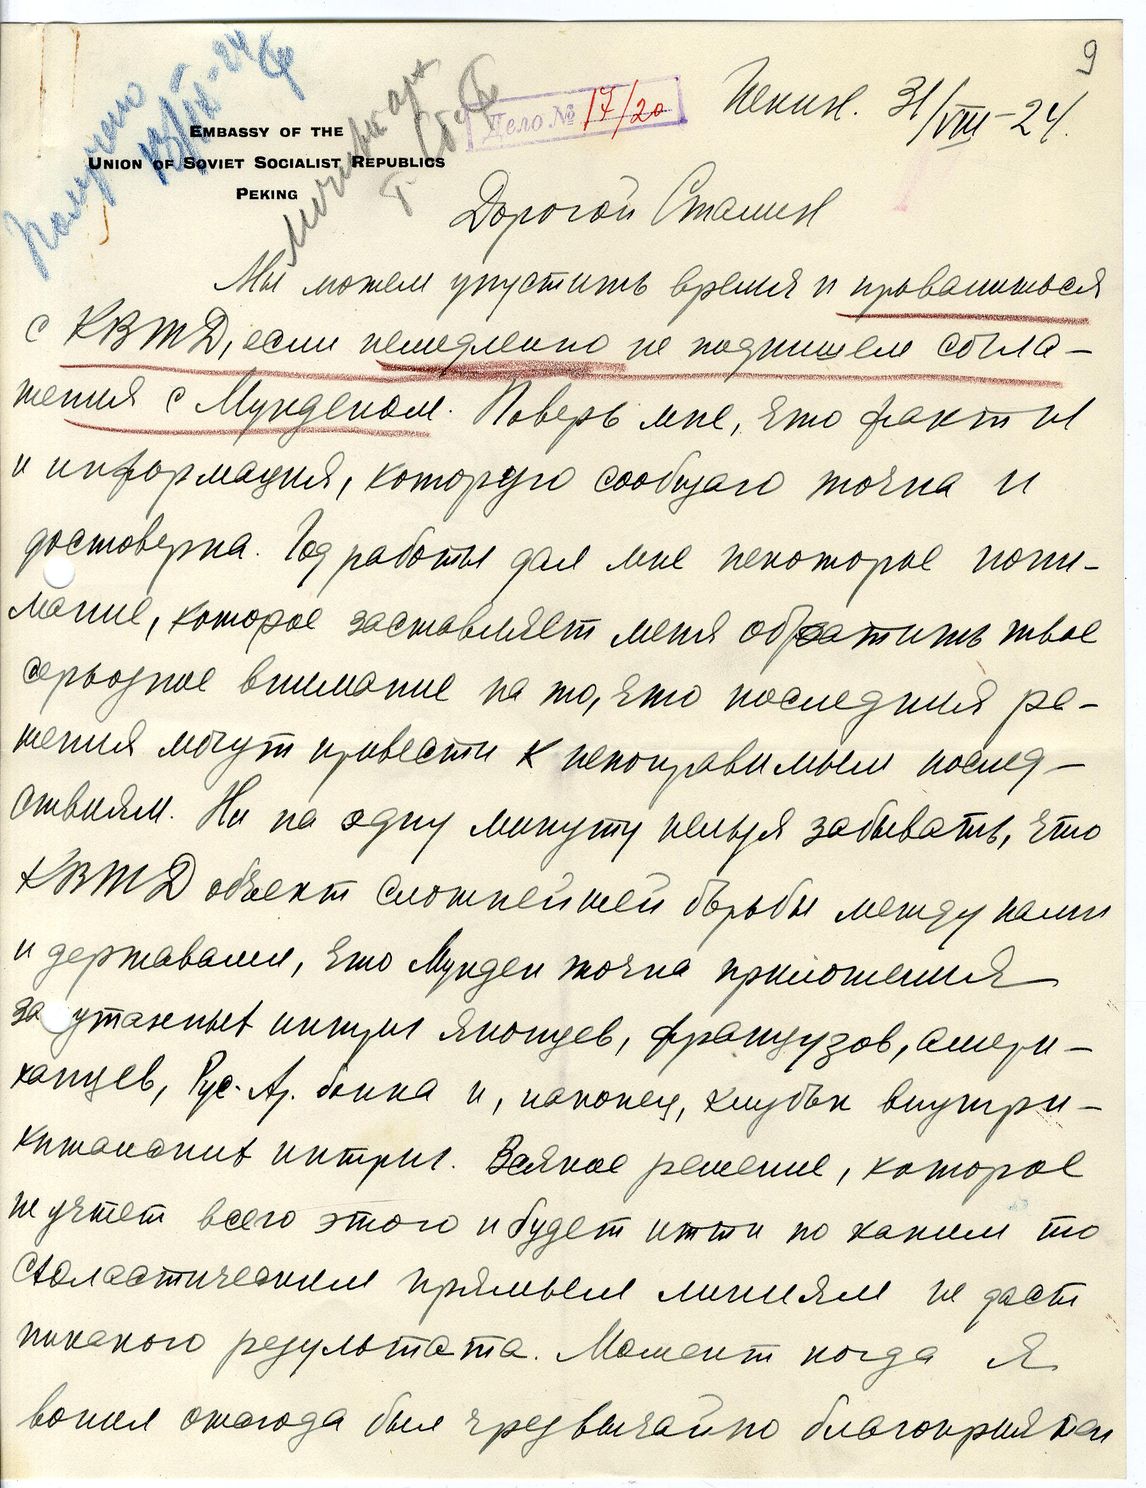 9
Получено
13/IX-24
EMBASSY OF THE
UNION OF SOVIET SOCIALIST REPUBLICS
PEKING
арх
Дело № 17/20
Пекин. 31/VIII-24.
Дорогой Сталин
Мы можем упустить время и провалиться
с КВЖД, если немедленно не подпишем согла-
шения с Мукденом. Поверь мне, что факты
и информация, которую сообщаю точна и
достоверна. Год работы дал мне некоторое пони-
мание, которое заставляет меня обратить твое
серьозное внимание на то, что последния ре-
шения могут привести к непоправимым послед-
ствиям. Ни на одну минуту нельзя забывать, что
КВЖД объект сложнейшей борьбы между нами
и державами, что Мукден точка приложения
запутанных интриг японцев, французов, амери-
канцев, Рус-Аз. банка и, наконец, клубок внутри-
китайских интриг. Всякое решение, которое
не учтет всего этого и будет итти по каким то
схоластическим прямым линиям не даст
никакого результата. Момент когда я
вопил отсюда был чрезвычайно благоприятен